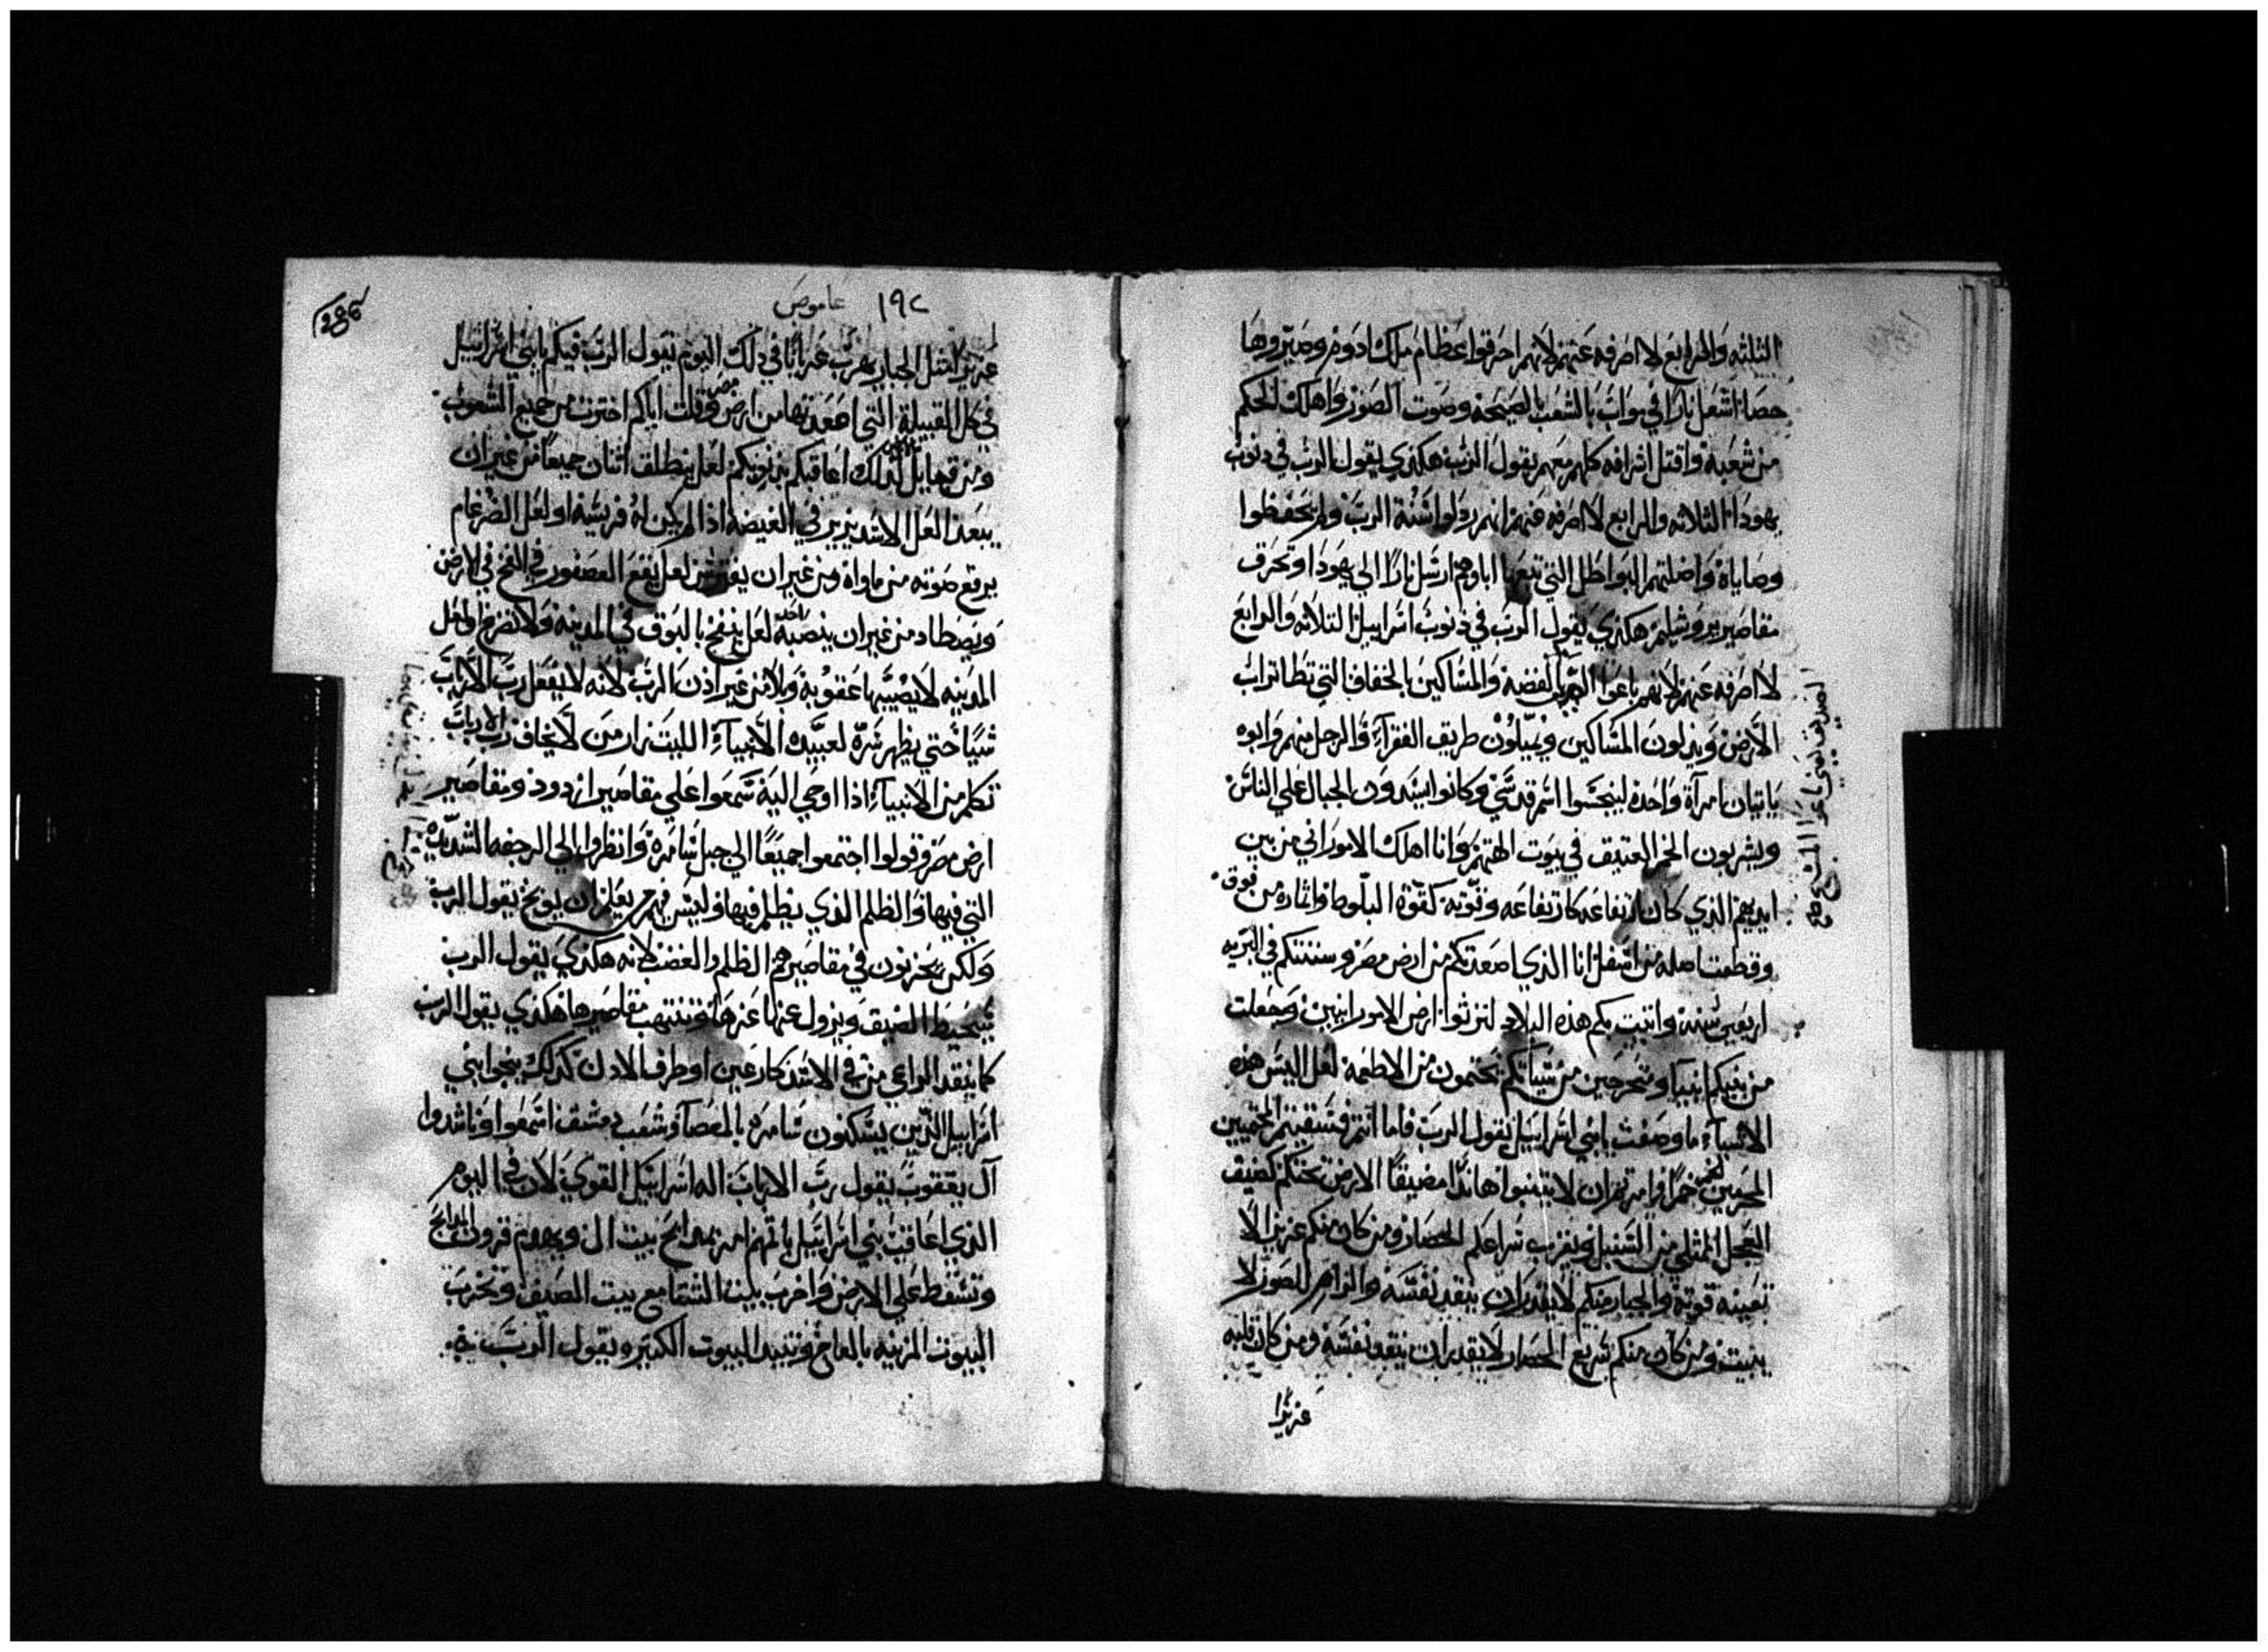 الثلثه والرابع لا اصرفه عنهم لانهم احرقوا عظام ملك ادوم وصيروها
حصا اشعل نارًا في مواب بالشعب بالصيحة وصوت الصور واهلك الحكم
من شعبه واقتل اشرافه كلهم معهم يقول الرب هكذي يقول الرب في ذنوب
يهودا الثلاثه والرابع لا اصرفه عنهم لانهم ردلوا سنة الرب ولم يحفظوا
وصاياه واضلتهم البواطل التي تبعها اباوهم ارسل نارًا الي يهودا وتحرق
مقاصير يروشيلم هكذي يقول الرب في ذنوب اسراييل الثلاثه والرابع
لا اصرفه عنهم لانهم باعوا بالفضه والمساكين بالخفاف التي تطا تراب
الارض وينزلون المساكين ويميلون طريق الفقراء والرجل منهم وابوه
ياتيان امرآة واحدة لينجسوا اسم قدسي وكانوا يشدون الحبال علي الناس
ويشربون الخمر العتيق في بيوت الهتهم وانا اهلك الاموراني من بين
ايديهم الذي كان ارتفاعه كارتفاعه وقوته كقوة البلوط واثماره من فوق
وقطعت اصله من اسفل انا الذي اصعدتكم من ارض مصر وسننتكم في البريه
اربعين سنة واتيت بكم هذه البلاد لترثوا ارض الامورانيين وجعلت
من بنيكم انبيا ومتحرجين من شبانكم يحتمون من الاطعمه لعل اليس هذه
الاشياء ما وصفت يابني اسراييل يقول الرب فاما انتم فسقيتم المحتميين
المحرمين خمرًا وامرتم ان لا يتنبوا هانذا مضيقًا الارض تحتكم كضيق
العجل الممتلي من السنبل ويقرب سراعكم الحصار ومن كان منكم عزيز الا
تعينه قوته والجبار منكم لا يقدر ان ينقد نفسه والرامي الصور لا
يثبت ومن كان منكم سريع الحصار لا يقدر ان ينقد نفسه ومن كان قلبه
عزيزا
١٩٢ عاموص
عزيزًا مثل الجبار يهرب عريانًا في ذلك اليوم يقول الرب فيكم يابني اسراييل
في كل القبيلة التي اصعدتها من ارض مصر وقلت اياكم اخترت من جميع الشعوب
ومن قبايل الارض لذلك اعاقبكم بذنوبكم لعل ينطلق اثنان جميعًا من غير ان
يبعدا لعل الاسد يزير في الغيضة اذا لم يكن له فريسة او لعل الضرغام
يرفع صوته من ماواه ومن غير ان يفترس لعل يقع العصفور في الفخ في الارض
ويصطاد من غير ان ينصبه احد لعل ينفخ بالبوق في المدينة ولا تفزع اهل
المدينه لا يصيبها عقوبة وبلا من غير اذن الرب لانه لا يفعل رب الارباب
شيًا حتي يظهر سره لعبيده الانبياء الليث زار من لا يخاف رب الارباب
تكلم من الانبياء اذا اوحي اليه سمعوا علي مقاصير ازدود ومقاصير
ارض مصر وقولوا اجتمعوا جميعًا الي جبل شامرة وانظروا الي الرجفه الشديدة
التي فيها والظلم الذي يظلم فيها وليس فيهم يعلم ان يوبخ يقول الرب
ولكن يخزنون في مقاصيرهم الظلم والغضب لانه هكذي يقول الرب
سيحيط الضيق ويزول عنها عزها وتنتهب مقاصيرها هكذي يقول الرب
كما ينقد الراعي من في الاسد كارعين او طرف الادن كذلك ينجوا بني
اسراييل الذين يسكنون شامره بالعصا وشعب دمشق اسمعوا وناشدوا
آل يعقوب يقول رب الارباب اله اسراييل القوي لان في اليوم
الذي اعاقب بني اسراييل باثمهم امر بمدابح بيت ال ويهدم قرون المدابح
وتسقط علي الارض واخرب بيت الشتا مع بيت الصيف وتخرب
البيوت المزينه بالعاج وتبيد البيوت الكبير ويقول الرب